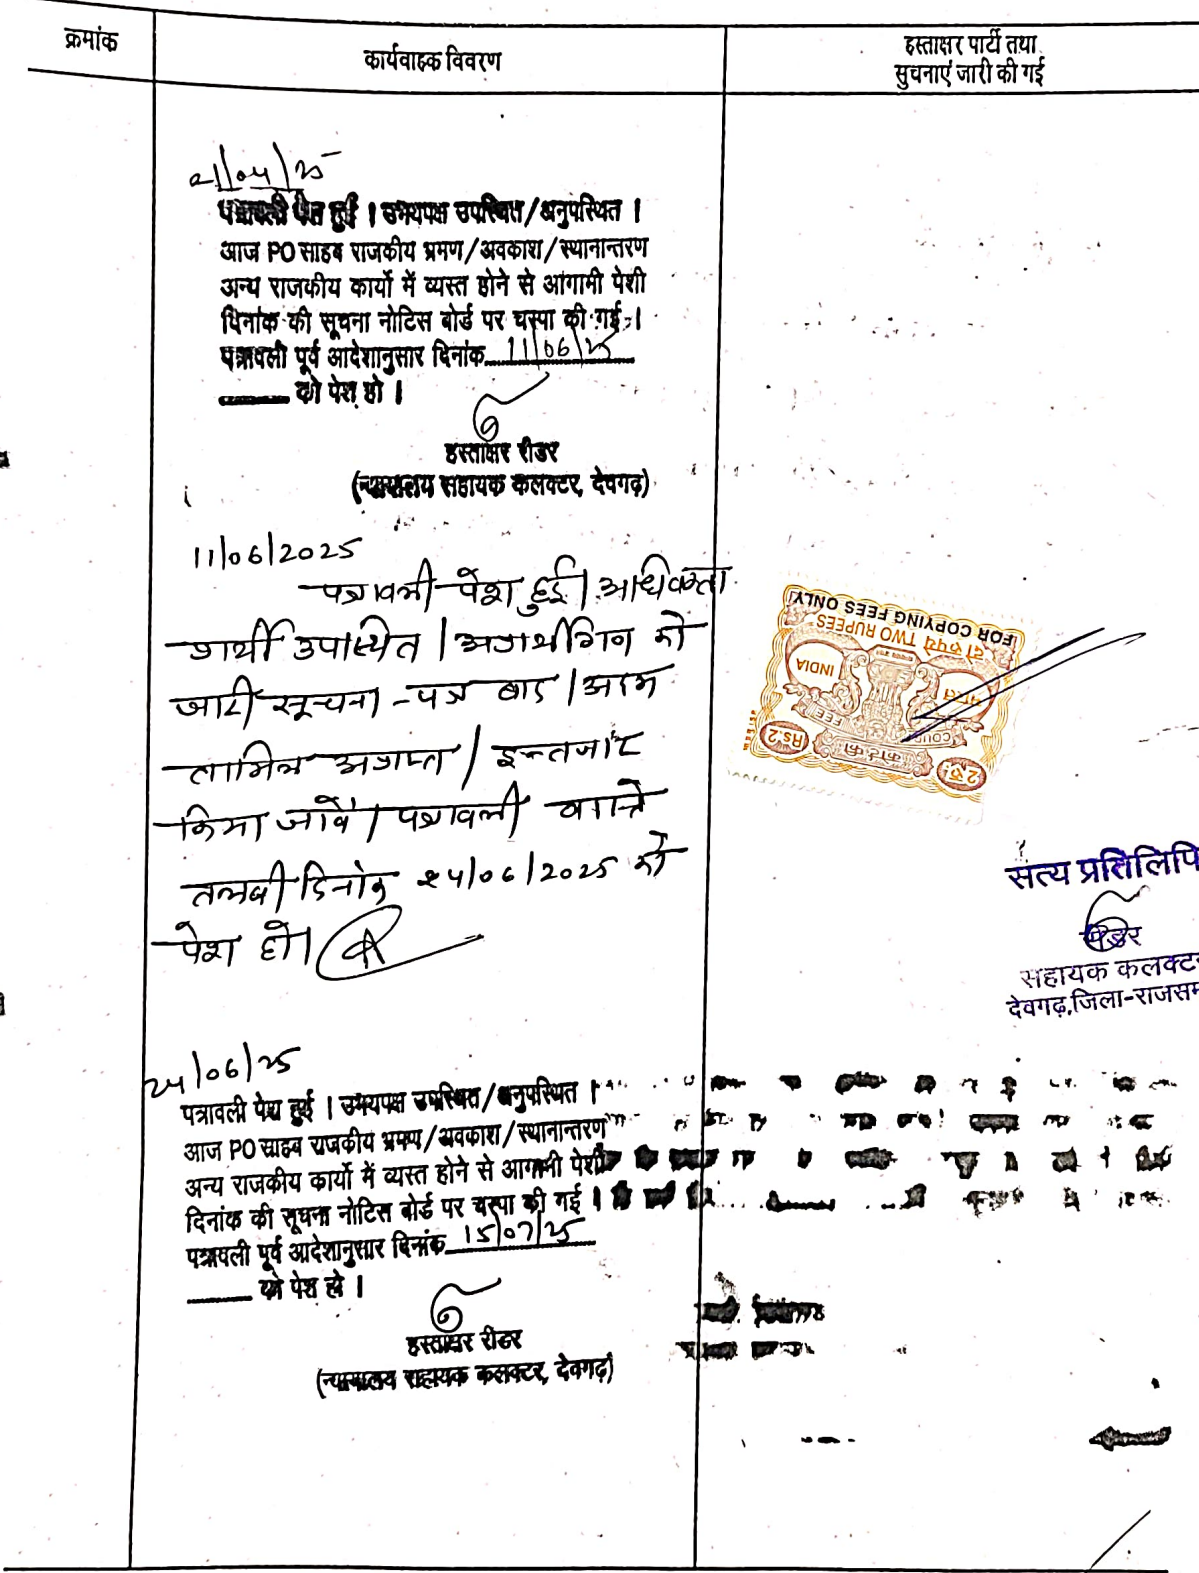 क्रमांक
कार्यवाहक विवरण
हस्ताक्षर पार्टी तथा
सुचनाएं जारी की गई
पत्रावली पेश हुई । उभयपक्ष उपस्थित/अनुपस्थित ।
आज PO साहब राजकीय भ्रमण/अवकाश/स्थानान्तरण
अन्य राजकीय कार्यो में व्यस्त होने से आगामी पेशी
दिनांक की सूचना नोटिस बोर्ड पर चस्पा की गई ।
पत्रावली पूर्व आदेशानुसार दिनांक 11/06/25
को पेश हो ।
हस्ताक्षर रीडर
(न्यायालय सहायक कलक्टर, देवगढ़)
11/06/2025
पत्रावली पेश हुई । अधिवक्ता
प्रार्थी उपस्थित । अप्रार्थीगण को
जारी सूचना-पत्र बाद
तामिल अप्राप्त । इन्तजार
किया जावें । पत्रावली वास्ते
तलबी दिनांक 24/06/2025 को
पेश हो ।
FOR COPYING FEES ONLY
दो रुपये TWO RUPEES
INDIA
भारत
COURT FEE
कोर्ट फी
Rs.2
2रु.
सत्य प्रतिलिपि
रीडर
सहायक कलक्टर
देवगढ़,जिला-राजसम
24/06/25
पत्रावली पेश हुई । उभयपक्ष उपस्थित/अनुपस्थित ।
आज PO साहब राजकीय भ्रमण/अवकाश/स्थानान्तरण
अन्य राजकीय कार्यो में व्यस्त होने से आगामी पेशी
दिनांक की सूचना नोटिस बोर्ड पर चस्पा की गई ।
पत्रावली पूर्व आदेशानुसार दिनांक 15/07/25
को पेश हो ।
हस्ताक्षर रीडर
(न्यायालय सहायक कलक्टर, देवगढ़)